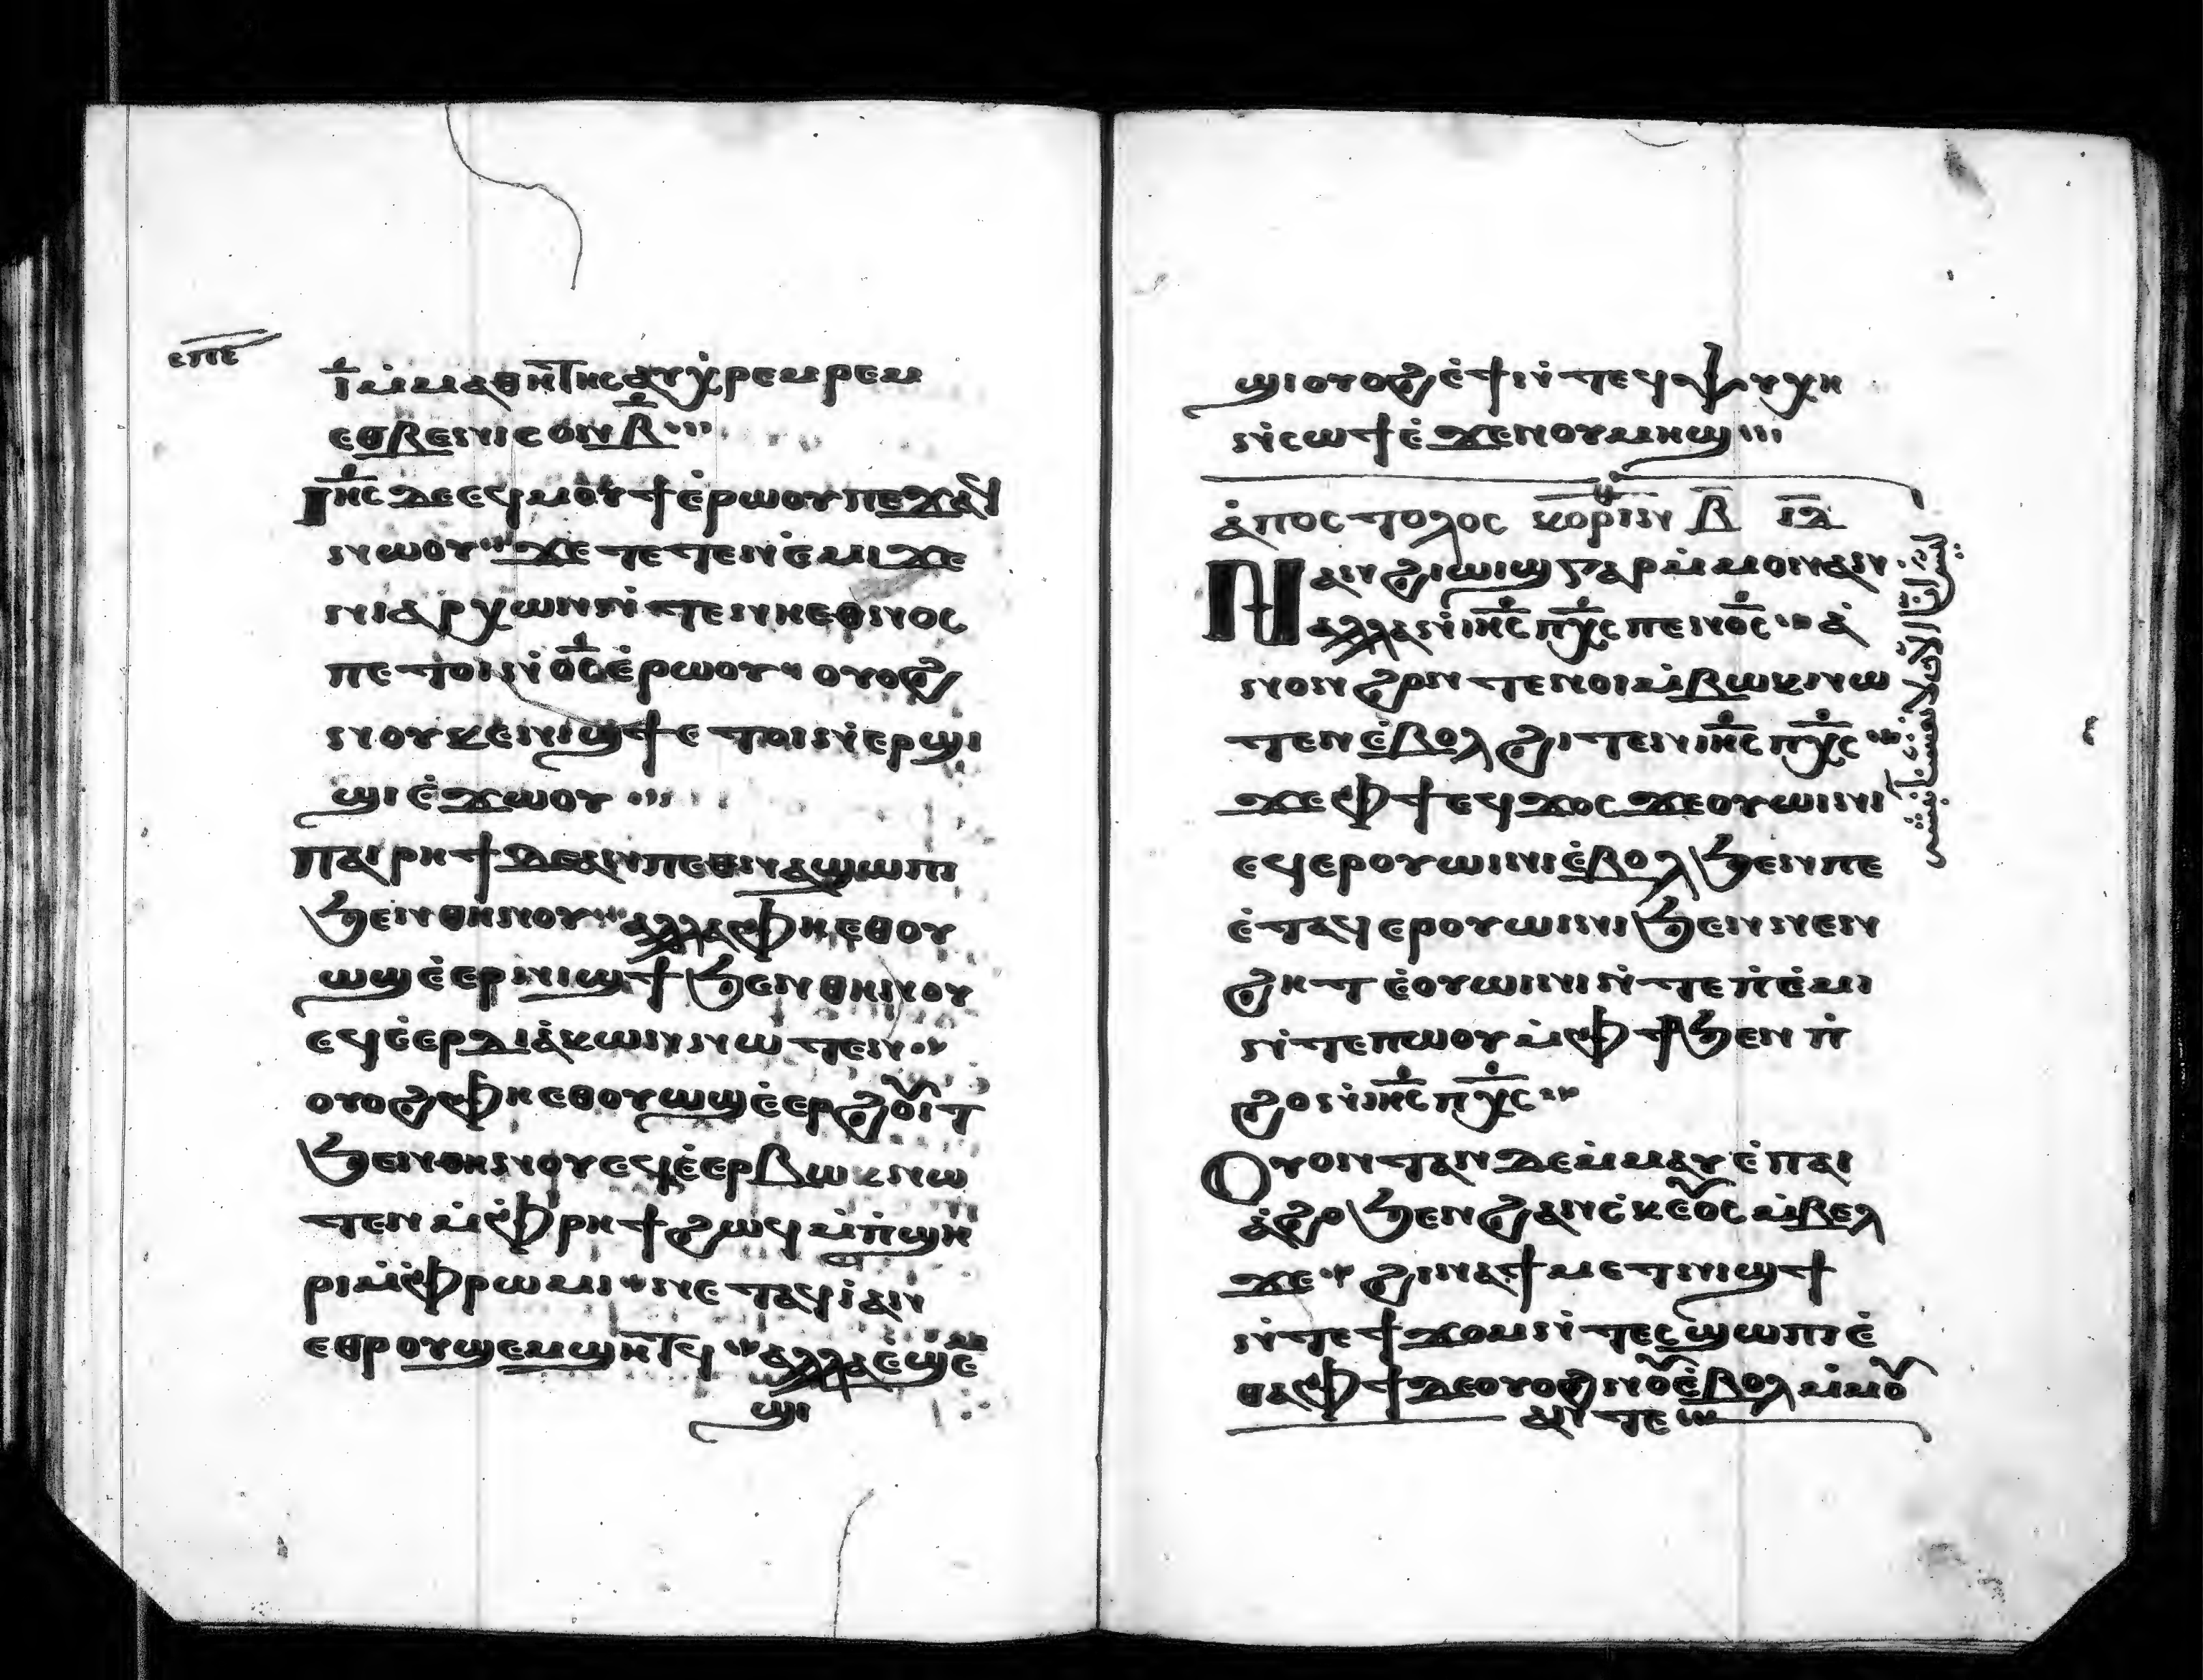 ⲉⲡⲉ
ⲓ̅ ⲙ̀ⲙⲁⲑⲏⲧⲏⲥ ⲁⲩⲭ̀ⲣⲉⲙⲣⲉⲙ
ⲉⲑⲃⲉⲡⲓⲥⲟⲛ ⲃ̅
ⲓ̅ⲏ̅ⲥ ⲇⲉ ⲉϥⲙⲟⲩϯ ⲉ̀ⲣⲱⲟⲩ ⲡⲉϫⲁϥ
ⲛⲱⲟⲩ ϫⲉ ⲧⲉⲧⲉⲛⲉ̀ⲙⲓ ϫⲉ
ⲛⲓⲁⲣⲭⲱⲛ ⲛ̀ⲧⲉⲛⲓⲉⲑⲛⲟⲥ
ⲡⲉⲧⲟⲓ ⲛ̀ⲟ̅ⲥ̅ ⲉ̀ⲣⲱⲟⲩ ⲟⲩⲟϩ
ⲛⲟⲩⲕⲉⲛⲓϣϯ ⲉⲧⲟⲓ ⲛ̀ⲉⲣϣⲓ
ϣⲓ ⲉ̀ϫⲱⲟⲩ
ⲡⲁⲓⲣⲏϯ ⲇⲉ ⲁⲛ ⲡⲉⲑⲛⲁϣⲱⲡⲓ
ϧⲉⲛⲑⲏⲛⲟⲩ ⲁⲗⲗⲁ ⲫⲏⲉⲑⲟⲩ
ⲱϣ ⲉ̀ⲉⲣⲛⲓϣϯ ϧⲉⲛⲑⲏⲛⲟⲩ
ⲉϥⲉ̀ⲉⲣⲇⲓⲁ̀ⲕⲱⲛ ⲛⲱⲧⲉⲛ
ⲟⲩⲟϩ ⲫⲏⲉⲑⲟⲩⲱϣ ⲉ̀ⲉⲣϩⲟⲩⲓⲧ
ϧⲉⲛⲑⲏⲛⲟⲩ ⲉϥⲉ̀ⲉⲣⲃⲱⲕ ⲛⲱ
ⲧⲉⲛ ⲙ̀ⲫⲣⲏϯ ϩⲱϥ ⲙ̀ⲡ̀ϣⲏ
ⲣⲓ ⲙ̀ⲫⲣⲱⲙⲓ ⲛⲉⲧⲁϥⲓ̀ ⲁⲛ
ⲉⲑⲣⲟⲩϣⲉⲙϣⲏⲧϥ ⲁⲗⲗⲁ ⲉϣⲉ
ϣⲓ
ϣⲓ ⲟⲩⲟϩ ⲉ̀ϯ ⲛ̀ⲧⲉϥⲯⲩⲭⲏ
ⲛ̀ⲥⲱϯ ⲉ̀ϫⲉⲛⲟⲩⲙⲏϣ
ⲁ̀ⲡⲟⲥⲧⲟⲗⲟⲥ ⲕⲟⲣⲓⲛ ⲃ̅ ⲓ̅ⲇ̅
ⲛⲁⲛϩⲓⲱⲓϣ ⲅⲁⲣ ⲙ̀ⲙⲟⲛ ⲁⲛ
ⲁⲗⲗⲁ ⲛ̀ⲓⲏ̅ⲥ̅ ⲡⲭ̅ⲥ̅ ⲡⲉⲛⲟ̅ⲥ̅ ⲁ̀
ⲛⲟⲛ ϩⲱⲛ ⲧⲉⲛⲟⲓ ⲙ̀ⲃⲱⲕ ⲛⲱ
ⲧⲉⲛ ⲉ̀ⲃⲟⲗ ϩⲓⲧⲉⲛ ⲓⲏ̅ⲥ̅ ⲡⲭ̅ⲥ̅
ϫⲉ ⲫϯ ⲉϥϫⲟⲥ ϫⲉ ⲟⲩⲱⲓⲛⲓ
ⲉϥⲉⲣⲟⲩⲱⲓⲛⲓ ⲉ̀ⲃⲟⲗ ϧⲉⲛ ⲡⲉ
ⲉ̀ⲧⲁϥⲉⲣⲟⲩⲱⲓⲛⲓ ϧⲉⲛ ⲛⲉⲛ
ϩⲏⲧ ⲉ̀ⲟⲩⲱⲓⲛⲓ ⲛ̀ⲧⲉ ⲡ̀ⲉ̀ⲙⲓ
ⲛ̀ⲧⲉ ⲡⲱⲟⲩ ⲙ̀ⲫϯ ϧⲉⲛ ⲡ̀
ϩⲟ ⲛ̀ⲓⲏ̅ⲥ̅ ⲡⲭ̅ⲥ̅
ⲟⲩⲟⲛⲧⲁⲛ ⲇⲉ ⲙ̀ⲙⲁⲩ ⲉ̀ⲡⲁⲓ
ⲁ̀ϩⲟ ϧⲉⲛ ϩⲁⲛⲥ̀ⲕⲉⲟⲥ ⲙ̀ⲃⲉⲗ
ϫⲉ ϩⲓⲛⲁ ϯⲙⲉⲧⲛⲓϣϯ
ⲛ̀ⲧⲉ ϯϫⲟⲙ ⲛ̀ⲧⲉⲥϣⲱⲡⲓ ⲉ̀
ⲑⲁ ⲫϯ ⲇⲉ ⲟⲩⲟϩ ⲛⲟⲩ ⲉ̀ⲃⲟⲗ ⲙ̀ⲙⲟ
ⲁⲛ ⲧⲉ